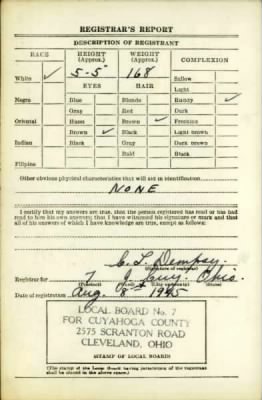 REGISTRAR'S REPORT
DESCRIPTION OF REGISTRANT
RACE HEIGHT (Approx.) WEIGHT (Approx.) COMPLEXION
White ✓ 5-5" 168 Sallow
EYES HAIR Light
Negro Blue Blonde Ruddy ✓
Gray Red Dark
Oriental Hazel Brown ✓ Freckled
Brown ✓ Black Light brown
Indian Black Gray Dark brown
Bald Black
Filipino
Other obvious physical characteristics that will aid in identification
NONE
I certify that my answers are true; that the person registered has read or has had
read to him his own answers; that I have witnessed his signature or mark and that
all of his answers of which I have knowledge are true, except as follows:
C. L. Dempsy
(Signature of registrar)
Registrar for 7 Cuy. Ohio.
(Precinct) (State)
Date of registration Aug. 1945
LOCAL BOARD No. 7
FOR CUYAHOGA COUNTY
2575 SCRANTON ROAD
CLEVELAND, OHIO
STAMP OF LOCAL BOARD
(The stamp of the Local Board having jurisdiction of the registrant
shall be placed in the above space.)